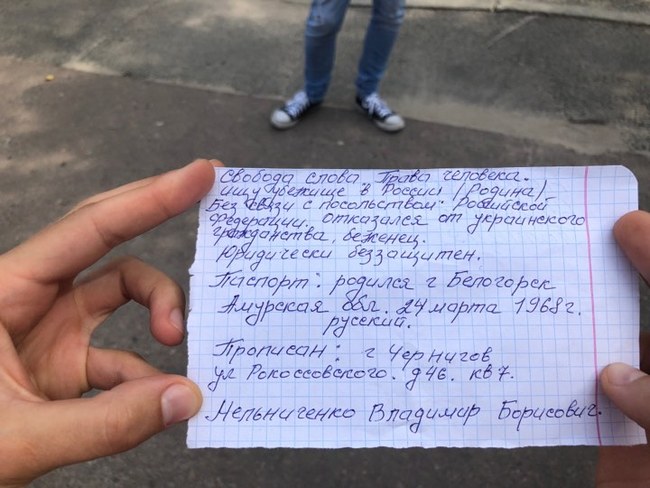 Свобода слова. Права человека.
ищу убежище в России (Родина)
Без связи с посольством: Российской
Федерации. отказался от украинского
гражданства, беженец.
Юридически беззащитен.
Паспорт: родился г Белогорск
Амурская обл. 24 марта 1968г.
русский.
Прописан: г Чернигов
ул Рокоссовского. д46. кв7.
Мельниченко Владимир Борисович.